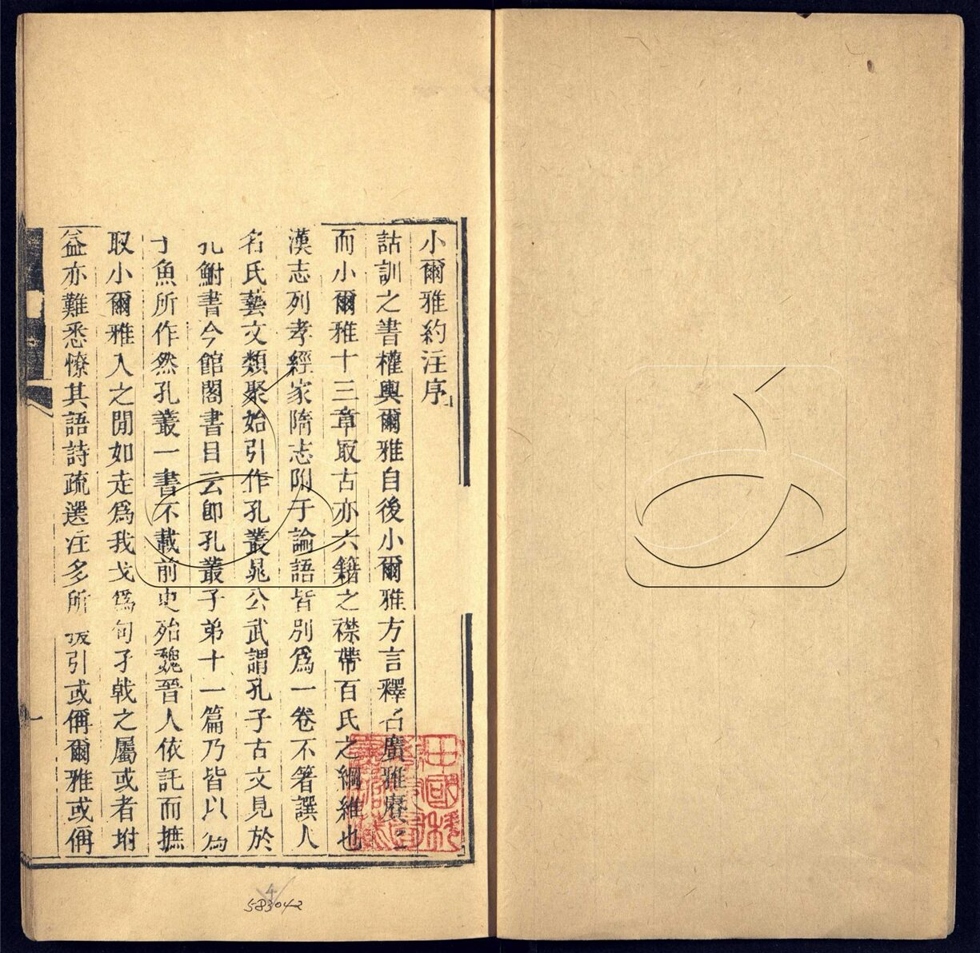 小爾雅約注序
詁訓之書權輿爾雅自後小爾雅方言釋名廣雅賡之
而小爾雅十三章取古亦六籍之襟帶百氏之綱維也
漢志列孝經家隋志附于論語皆別爲一卷不箸譔人
名氏藝文類聚始引作孔叢晁公武謂孔子古文見於
孔鮒書今館閣書目云卽孔叢子弟十一篇乃皆以爲
子魚所作然孔叢一書不載前史殆魏晉人依託而摭
取小爾雅入之閒如走爲我戈爲句孑戟之屬或者坿
益亦難悉憭其語詩疏選注多所援引或偁爾雅或偁
583042